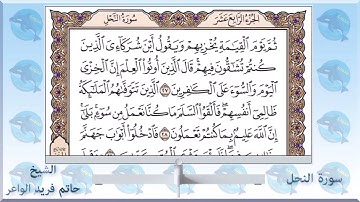 سُورَةُ النَّحْلِ
الجُزْءُ الرَّابِعَ عَشَرَ
ثُمَّ يَوْمَ الْقِيَمَةِ يُخْزِيهِمْ وَيَقُولُ أَيْنَ شُرَكَآءِىَ الَّذِينَ
كُنتُمْ تُشَٰٓقُّونَ فِيهِمْ قَالَ الَّذِينَ أُوتُوا الْعِلْمَ إِنَّ الْخِزْىَ
الْيَوْمَ وَالسُّوٓءَ عَلَى الْكَٰفِرِينَ ٢٧ الَّذِينَ تَتَوَفَّىٰهُمُ الْمَلَٰٓئِكَةُ
ظَالِمِىٓ أَنفُسِهِمْ فَأَلْقَوُا السَّلَمَ مَا كُنَّا نَعْمَلُ مِن سُوٓءٍ بَلَىٰٓ
إِنَّ اللَّهَ عَلِيمٌۢ بِمَا كُنتُمْ تَعْمَلُونَ ٢٨ فَادْخُلُوٓا أَبْوَٰبَ جَهَنَّمَ
الشيخ
حاتم فريد الواعر
سورة النحل